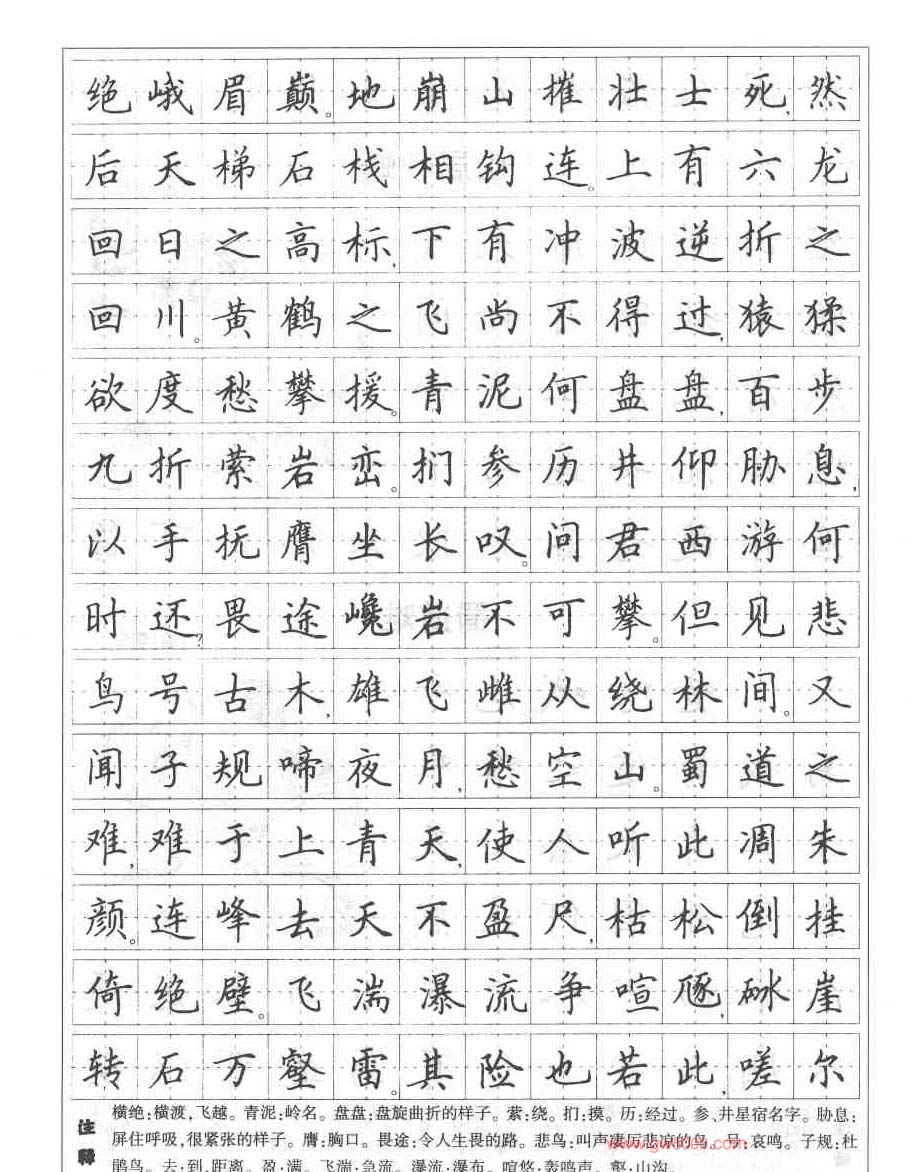 绝峨眉巅。地崩山摧壮士死,然
后天梯石栈相钩连。上有六龙
回日之高标,下有冲波逆折之
回川。黄鹤之飞尚不得过,猿猱
欲度愁攀援。青泥何盘盘,百步
九折萦岩峦。扪参历井仰胁息,
以手抚膺坐长叹。问君西游何
时还?畏途巉岩不可攀。但见悲
鸟号古木,雄飞雌从绕林间。又
闻子规啼夜月,愁空山。蜀道之
难,难于上青天,使人听此凋朱
颜。连峰去天不盈尺,枯松倒挂
倚绝壁。飞湍瀑流争喧豗,砯崖
转石万壑雷。其险也若此,嗟尔
注释
横绝:横渡,飞越。青泥:岭名。盘盘:盘旋曲折的样子。萦:绕。扪:摸。历:经过。参、井星宿名字。胁息:
屏住呼吸,很紧张的样子。膺:胸口。畏途:令人生畏的路。悲鸟:叫声凄厉悲凉的鸟。号:哀鸣。子规:杜
鹃鸟。去:到,距离。盈:满。飞湍:急流。瀑流:瀑布。喧豗:轰鸣声。壑:山沟。